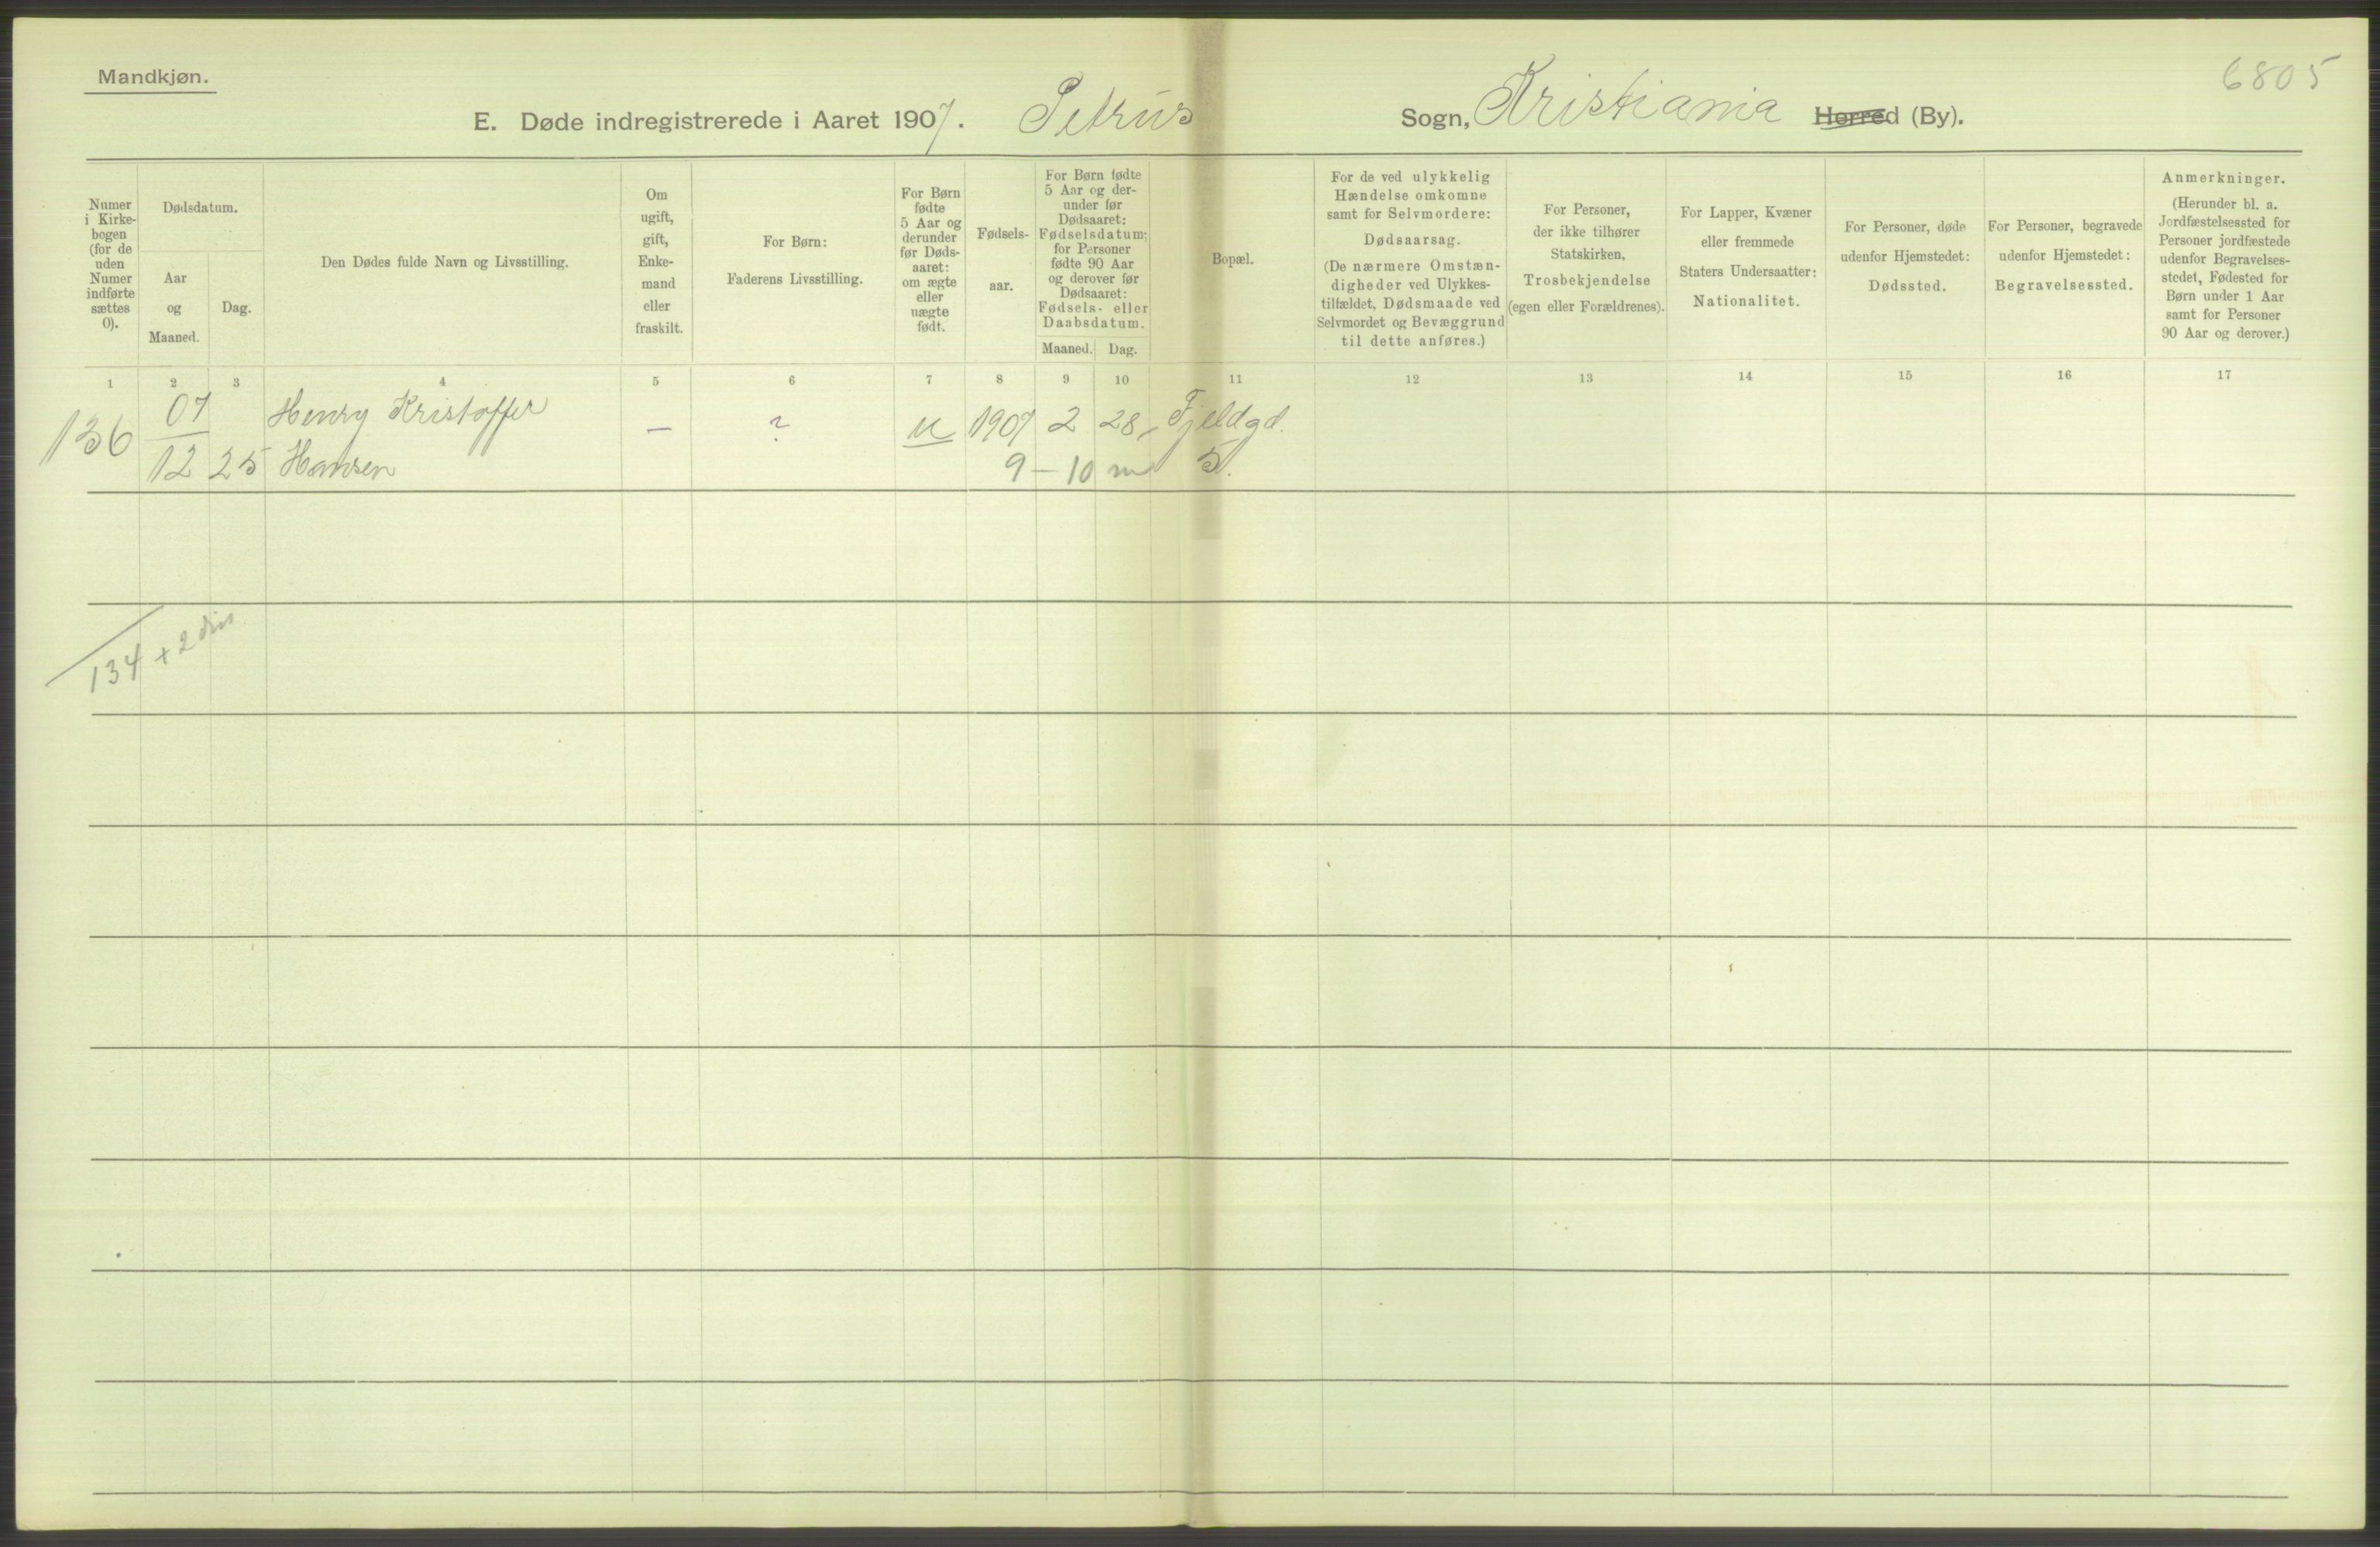 Mandkjøn.
6805
E. Døde indregistrerede i Aaret 1907. Petrus Sogn, Kristiania Horred (By).
Numer i Kirke-bogen (for de uden Numer indførte sættes 0).
Dødsdatum.
Aar og Maaned.
Dag.
Den Dødes fulde Navn og Livsstilling.
Om ugift, gift, Enke-mand eller fraskilt.
For Børn: Faderens Livsstilling.
For Børn fødte 5 Aar og derunder før Døds-aaret: om ægte eller uægte født.
Fødsels-aar.
For Børn fødte 5 Aar og der-under før Dødsaaret: Fødselsdatum; for Personer fødte 90 Aar og derover før Dødsaaret: Fødsels- eller Daabsdatum.
Maaned. Dag.
Bopæl.
For de ved ulykkelig Hændelse omkomne samt for Selvmordere: Dødsaarsag. (De nærmere Omstæn-digheder ved Ulykkes-tilfældet, Dødsmaade ved Selvmordet og Bevæggrund til dette anføres.)
For Personer, der ikke tilhører Statskirken, Trosbekjendelse (egen eller Forældrenes).
For Lapper, Kvæner eller fremmede Staters Undersaatter: Nationalitet.
For Personer, døde udenfor Hjemstedet: Dødssted.
For Personer, begravede udenfor Hjemstedet: Begravelsessted.
Anmerkninger. (Herunder bl. a. Jordfæstelsessted for Personer jordfæstede udenfor Begravelses-stedet, Fødested for Børn under 1 Aar samt for Personer 90 Aar og derover.)
1 2 3 4 5 6 7 8 9 10 11 12 13 14 15 16 17
136 07 Henry Kristoffer — ? u 1907 2 28 Fjeldgd.
12 25 Hansen 9 – 10 m 5.
134 + 2